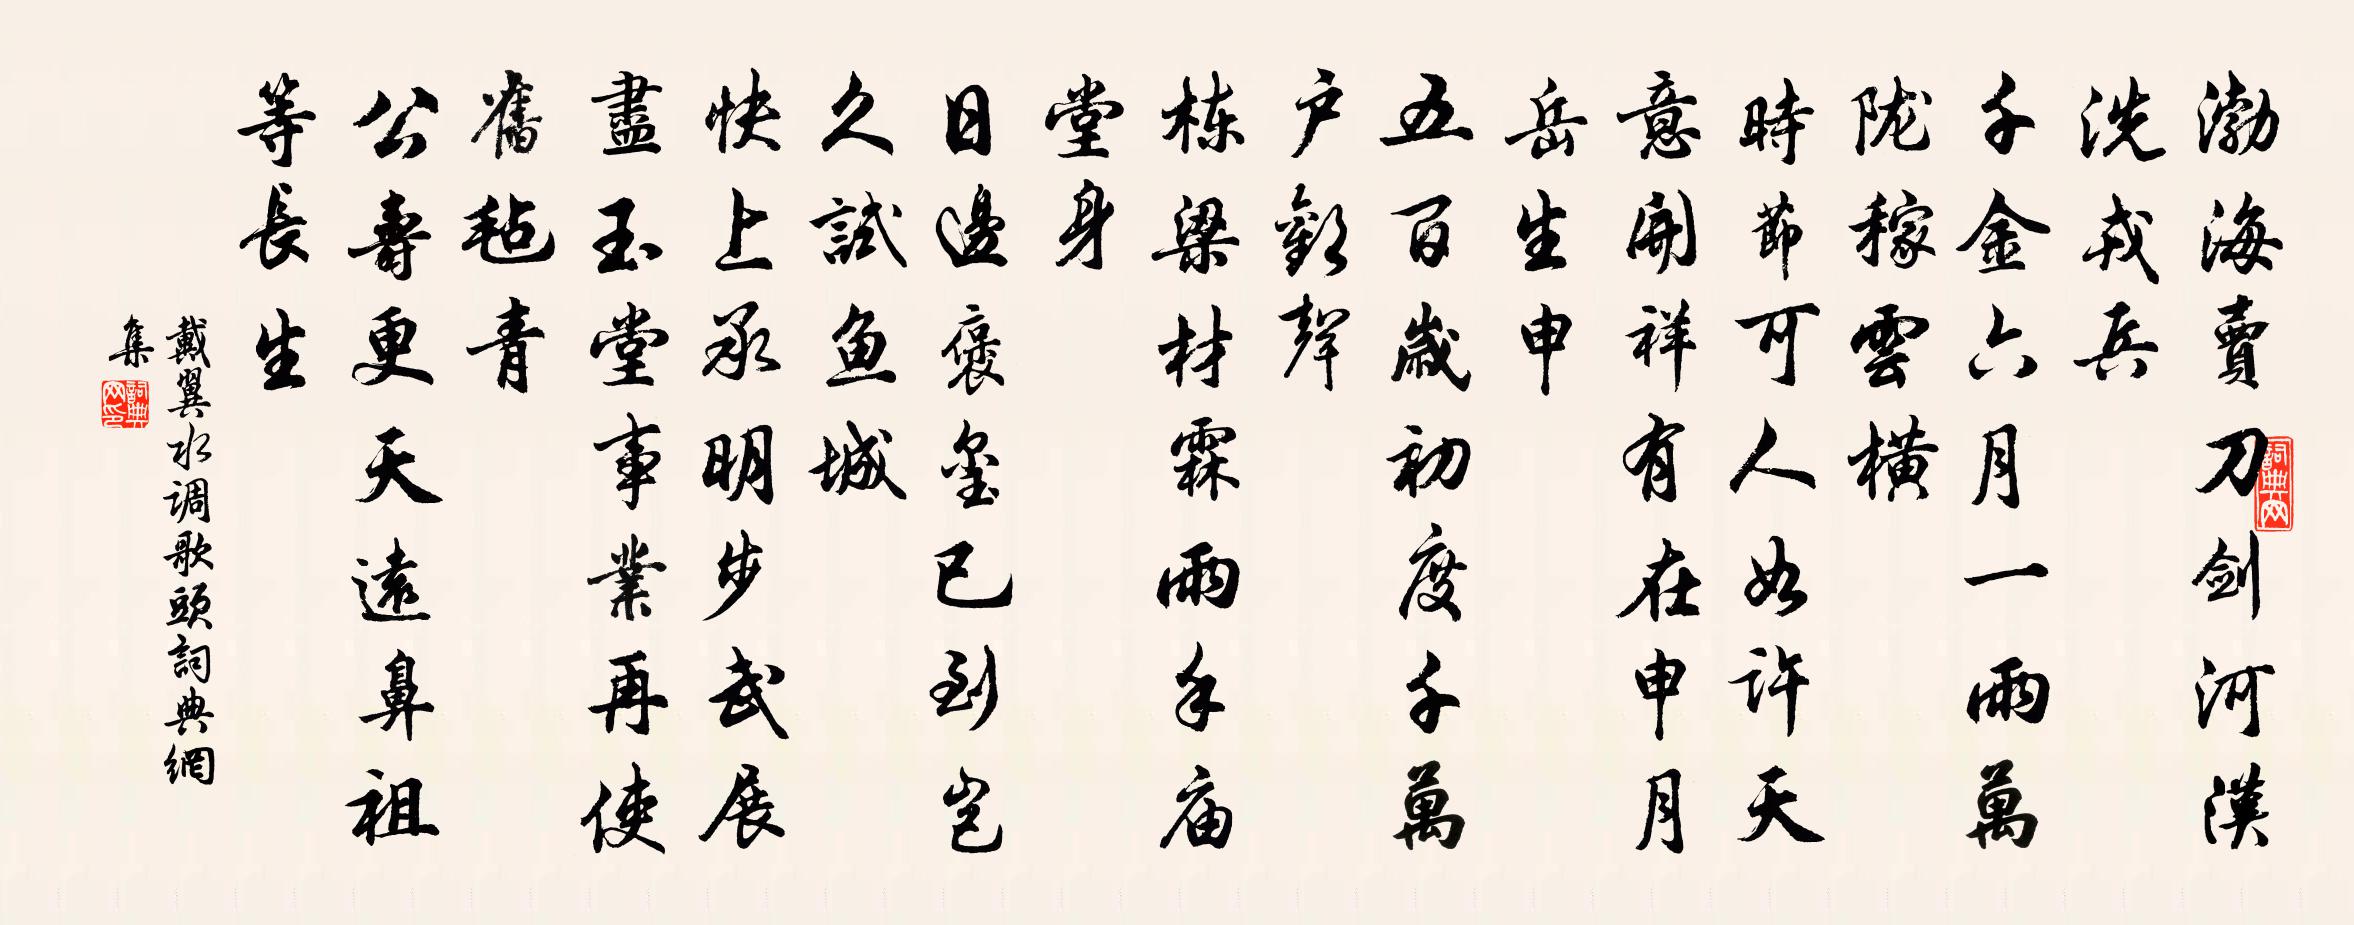 渤海賣刀劍河漢
洗戎兵
千金六月一雨萬
陇稼雲橫
時節可人如许天
意開祥有在申月
岳生申
五百歲初度千萬
户歡聲
栋梁材霖雨手庙
堂身
日邊褒璽已到岂
久試魚城
快上承明步武展
盡玉堂事業再使
舊毡青
公壽更天遠鼻祖
等長生
戴翼水调歌頭詞典網
集
詞典网
詞典网印